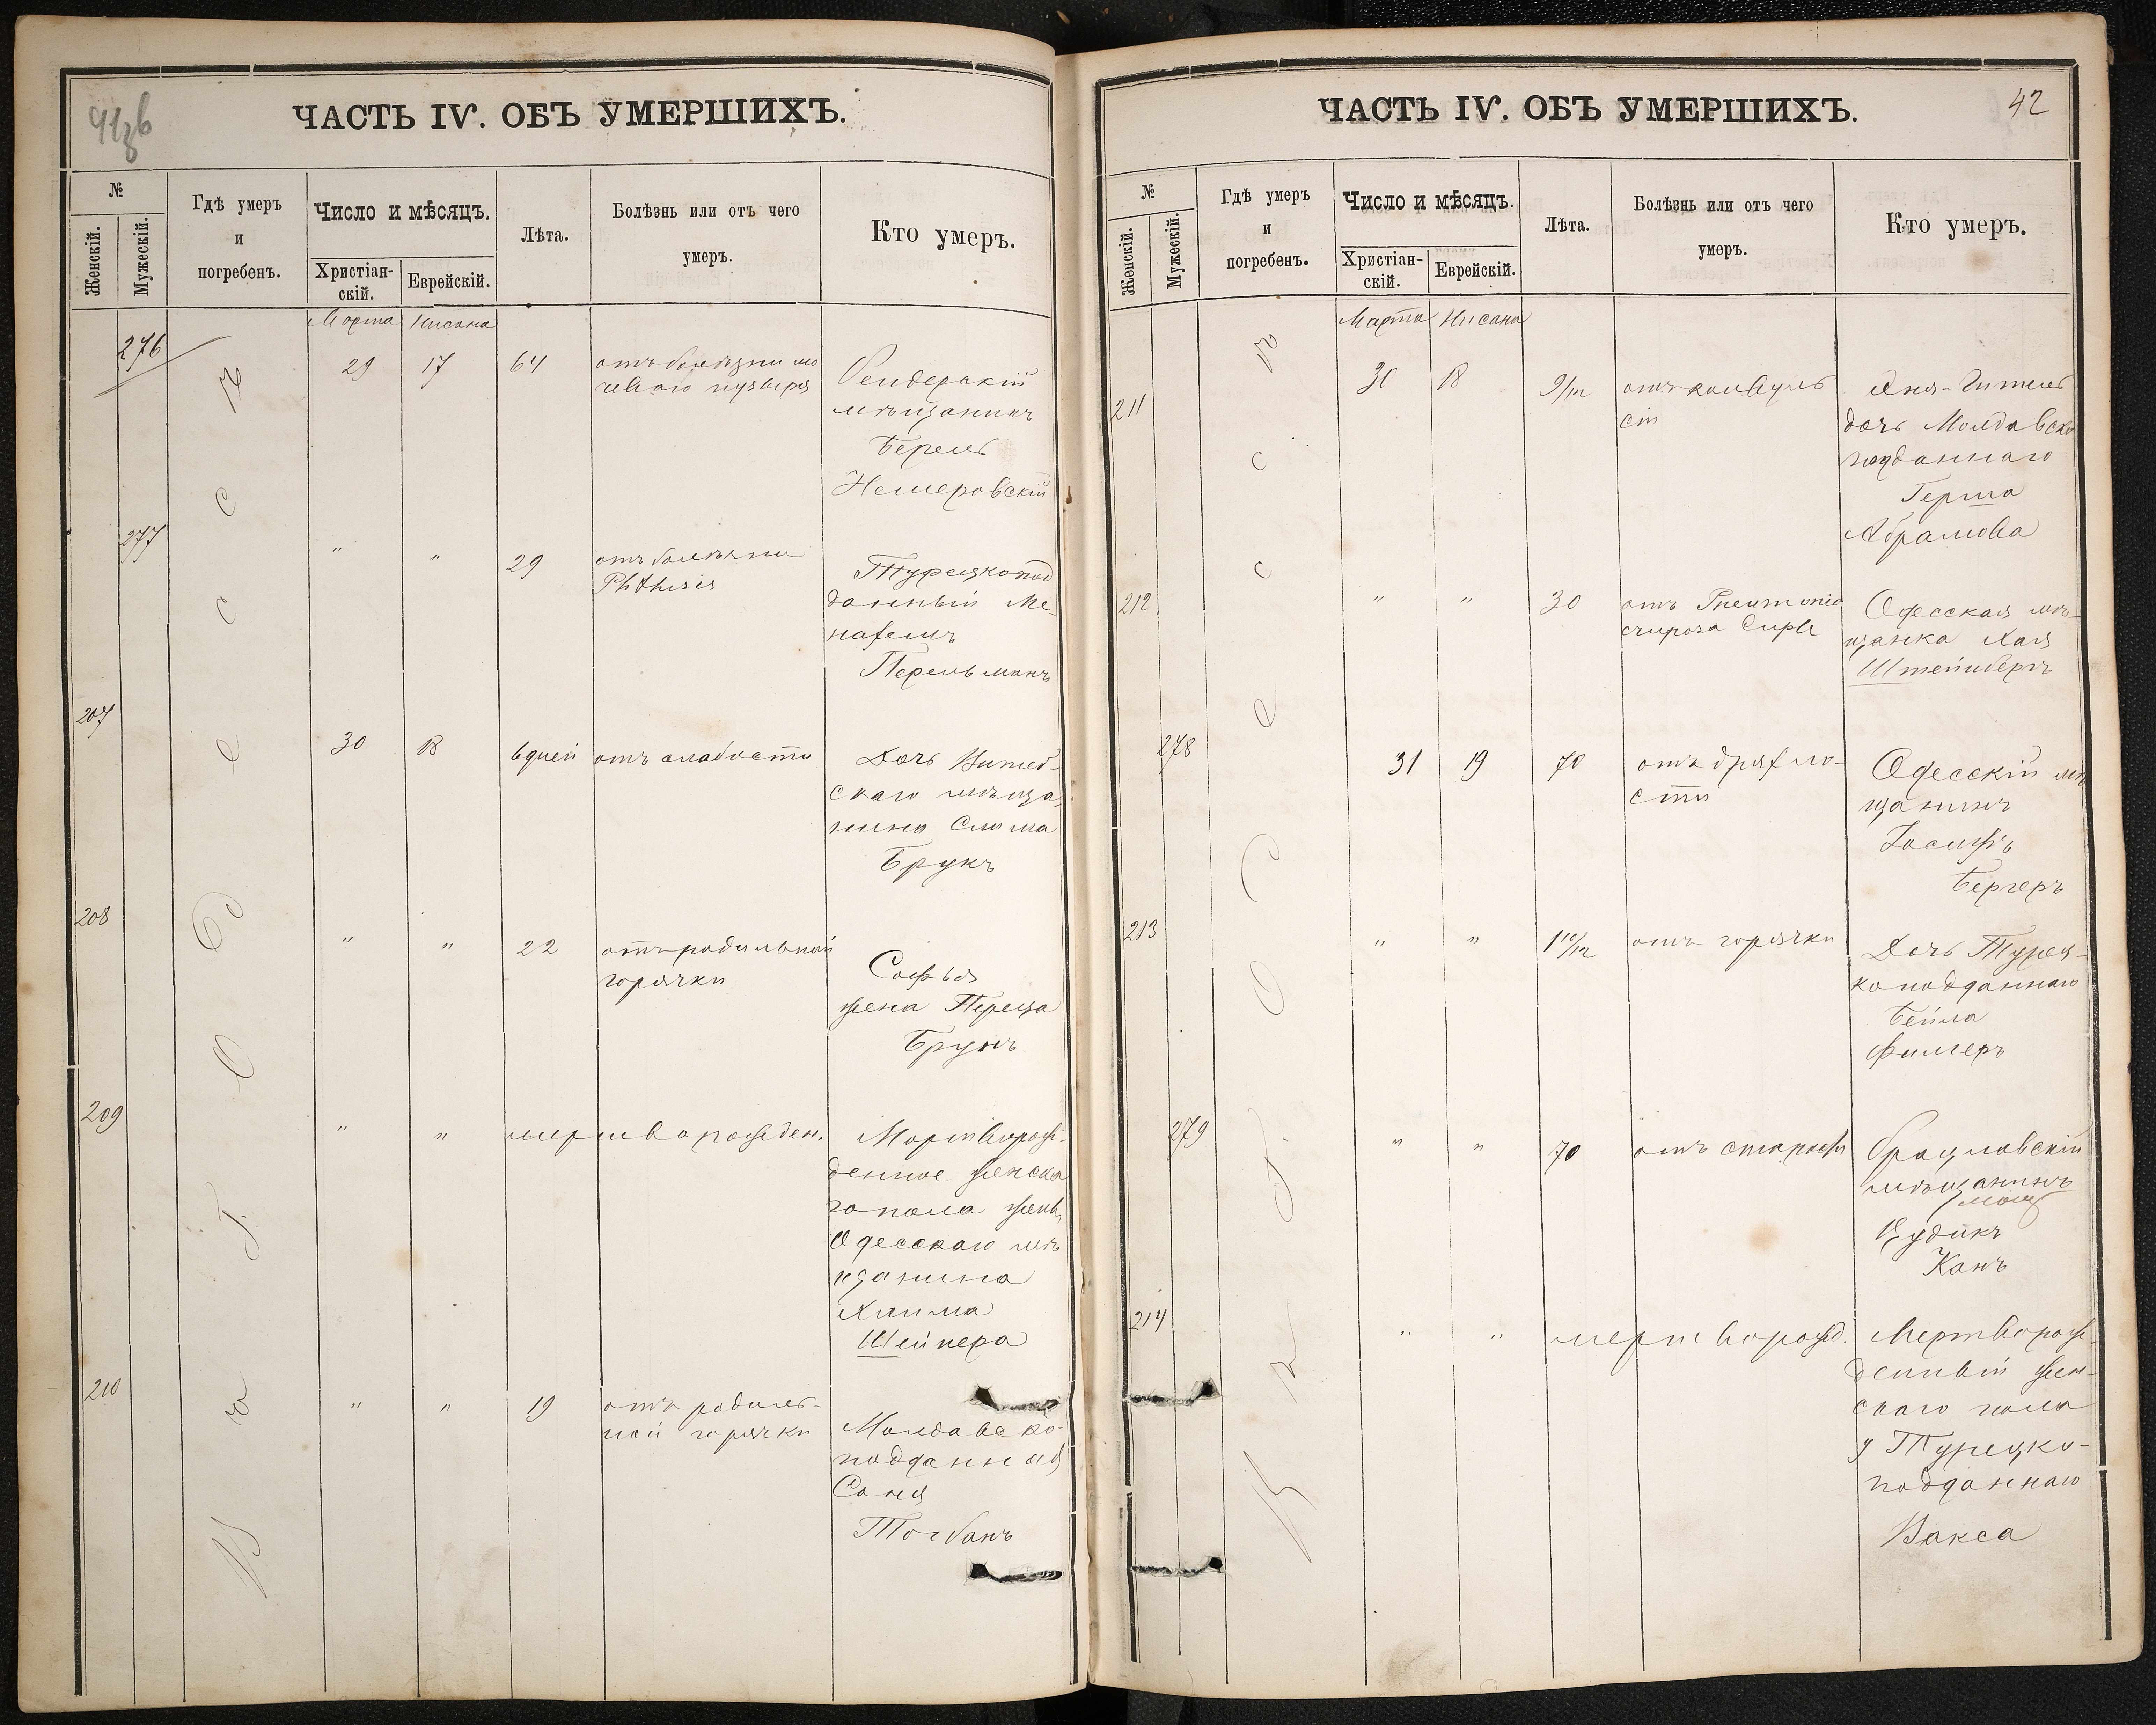 41зв
ЧАСТЬ IV. ОБЪ УМЕРШИХЪ.
№
Женскій.
Мужескій.
Гдѣ умеръ
и
погребенъ.
Число и мѣсяцъ.
Христіан-
скій.
Еврейскій.
Лѣта.
Болѣзнь или отъ чего
умеръ.
Кто умеръ.
Марта Нисана
Въ г. Одессѣ
276 29 17 64 отъ болѣзни мо
чеваго пузыря
Бендерскій
мѣщанинъ
Берель
Немеровскій
277 " " 29 отъ болѣзни
Phthisis
Турецкопод
данный Ме-
нахемъ
Перельманъ
207 30 18 6 дней отъ слабости
Дочь Витеб-
скаго мѣща-
нина Сима
Брукъ
208 " " 22 отъ родильной
горячки
Софья
жена Переца
Брунъ
209 " " мертворожден.
Мертворож-
денное женска
го пола жены
Одесскаго мѣ
щанина
Хаима
Шейнера
210 " " 19 отъ родиль-
ной горячки
Молдавско-
подданная
Соня
42
ЧАСТЬ IV. ОБЪ УМЕРШИХЪ.
№
Женскій.
Мужескій.
Гдѣ умеръ
и
погребенъ.
Число и мѣсяцъ.
Христіан-
скій.
Еврейскій.
Лѣта.
Болѣзнь или отъ чего
умеръ.
Кто умеръ.
Марта Нисана
Въ г. Одессѣ
211 30 18 9/12 отъ конвуль
сій
Хня-Гитель
дочь Молдавско
подданнаго
Герша
Абрамова
212 " " 30 отъ Pneumonia
Одесская мѣ-
щанка Хая
Штейнбергъ
278 31 19 70 отъ дряхло-
сти
Одесскій мѣ
щанинъ
Іосифъ
Бергеръ
213 " " 1 10/12 отъ горячки
Дочь Турец-
коподданнаго
Бейла
Фишеръ
279 " " 70 отъ старости
Брацлавскій
мѣщанинъ
Цудикъ
Канъ
214 " " мертворожд.
Мертворож-
денный жен-
скаго пола
у Турецко-
подданнаго
Вакса